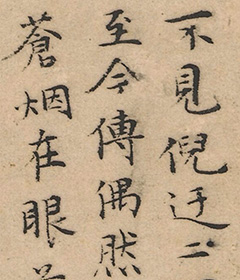 不見倪迂二
至今傳偶然
蒼烟在眼